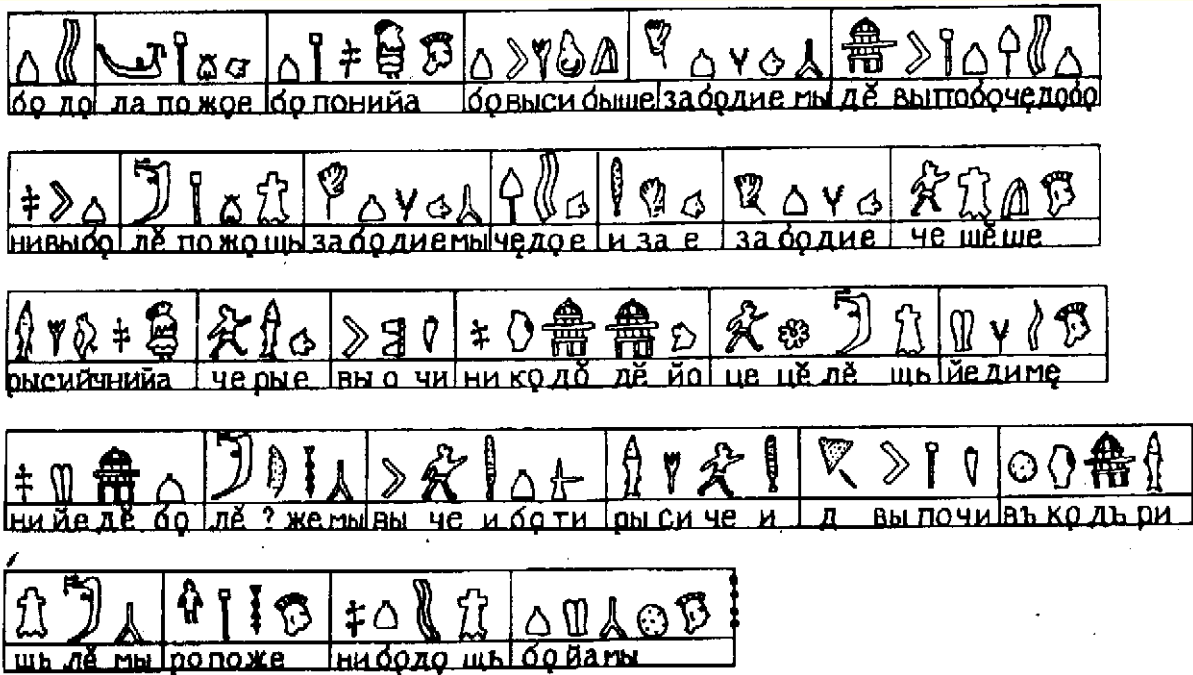 бǫ дǫ ла по жǫе бǫ понийа бǫвыси быше забǫдие мы дě выпобǫчедǫбǫ
нивыбǫ лě пожǫщь забǫдиемы чędǫе и за е забǫдие че шěше
рысийчнийа черые вы о чи ни кǫдǒ дě йо це цě лě щь йедимę
ни йе дě бǫ лě ? жемы вы че и бǫ ти ры си че и д выпочи въ кǫ дь ри
щь лě мы ропоже нибǫдǫ щь бǫ йамы